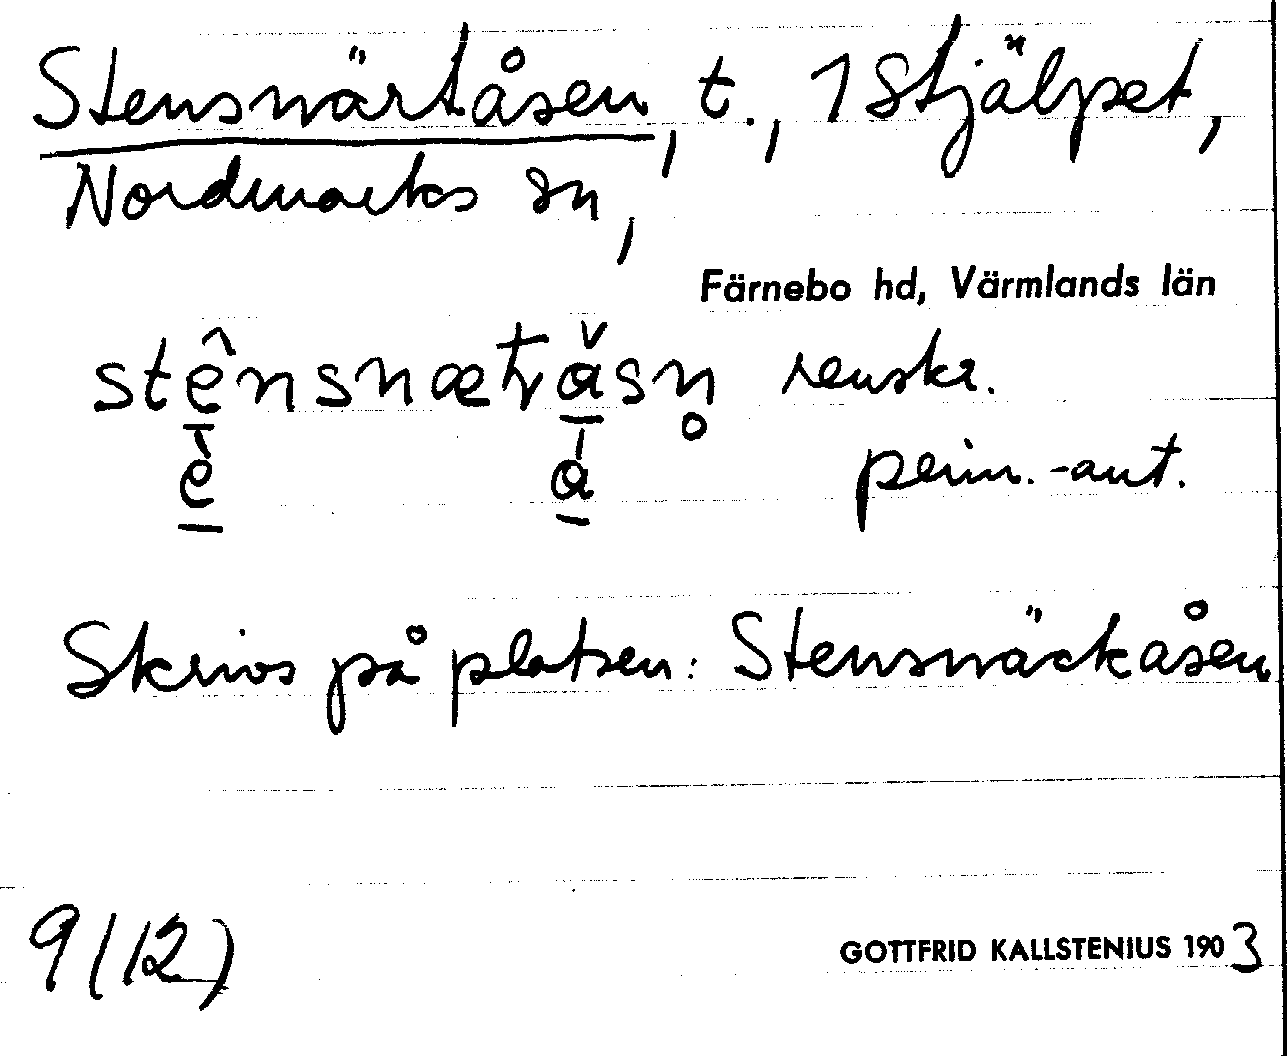 Stensnärtåsen, t., 1 Stjälpet,
Nordmarks sn,
Färnebo hd, Värmlands län
renskr.
prim.-ant.
Skrivs på platsen: Stensnäckåsen
9(12)
GOTTFRID KALLSTENIUS 1903